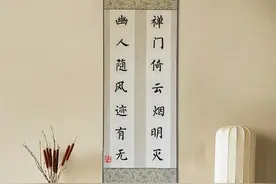 禅门倚云烟明灭
幽人随风迹有无